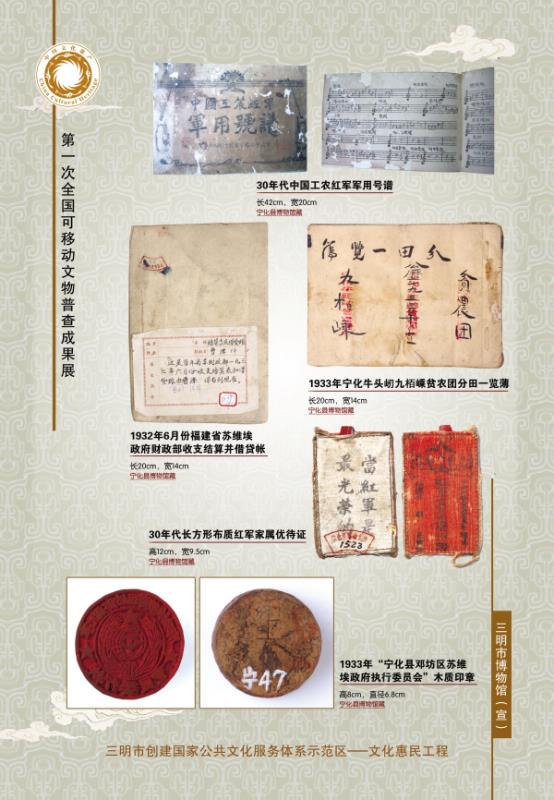 中国文化遗产
China Cultural Heritage
第一次全国可移动文物普查成果展
軍用號譜
30年代中国工农红军军用号谱
长42cm，宽20cm
宁化县博物馆藏
分田一覽簿
九栢嵊
貧農团
1933年宁化牛头岃九栢嵊贫农团分田一览薄
长20cm，宽14cm
宁化县博物馆藏
1932年6月份福建省苏维埃
政府财政部收支结算并借贷帐
长20cm，宽14cm
宁化县博物馆藏
當紅軍是
最光榮的
1523
30年代长方形布质红军家属优待证
高12cm，宽9.5cm
宁化县博物馆藏
宁47
1933年“宁化县邓坊区苏维
埃政府执行委员会”木质印章
高8cm，直径6.8cm
宁化县博物馆藏
三明市博物馆（宣）
三明市创建国家公共文化服务体系示范区——文化惠民工程